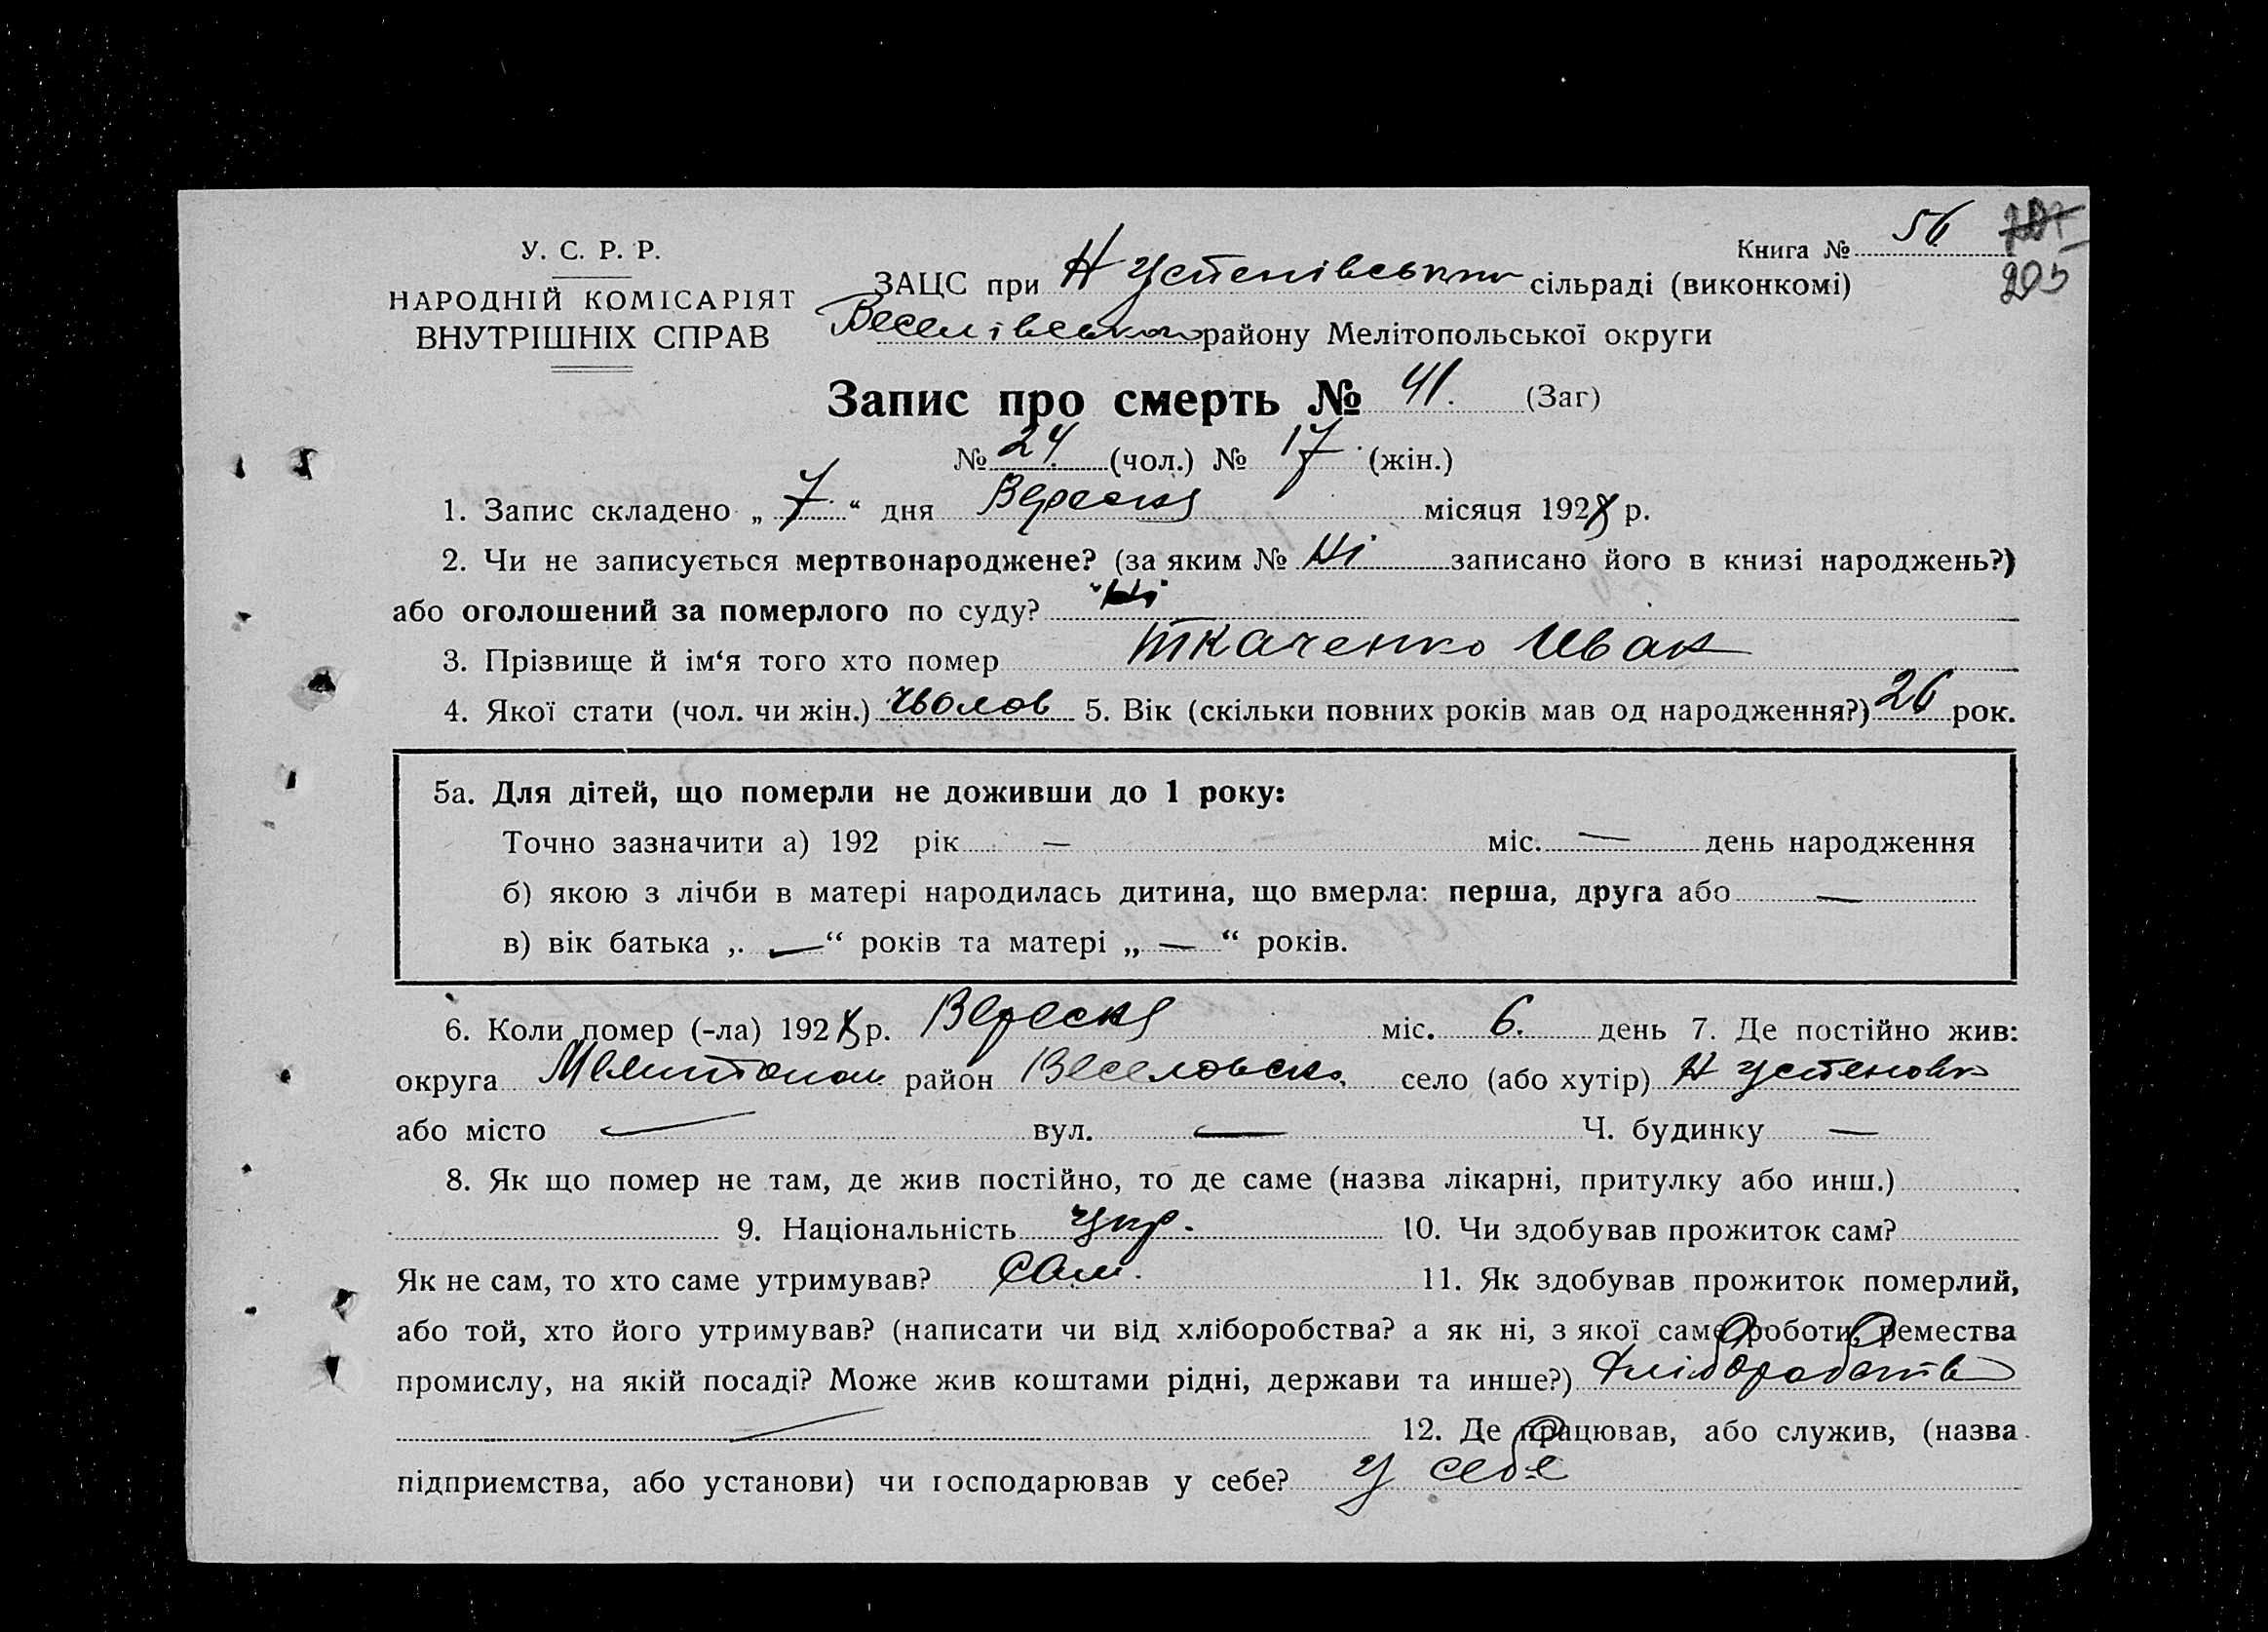 Книга № 56
205
У. С. Р. Р.
НАРОДНІЙ КОМІСАРІЯТ
ВНУТРІШНІХ СПРАВ
ЗАЦС при Н Успенівською сільраді (виконкомі)
Веселівського району Мелітопольської округи
Запис про смерть № 41. (Заг)
№ 24 (чол.) № 17 (жін.)
1. Запис складено „ 7 “ дня Вересня місяця 1928 р.
2. Чи не записується мертвонароджене? (за яким № Ні записано його в книзі народжень?)
або оголошений за померлого по суду? Ні
3. Прізвище й ім‘я того хто помер Ткаченко Иван
4. Якої стати (чол. чи жін.) чволов 5. Вік (скільки повних років мав од народження?) 26 рок.
5а. Для дітей, що померли не доживши до 1 року:
Точно зазначити а) 192 рік — міс. — день народження
б) якою з лічби в матері народилась дитина, що вмерла: перша, друга або —
в) вік батька „ — “ років та матері „ — “ років.
6. Коли помер (-ла) 1928 р. Вересня міс. 6. день 7. Де постійно жив:
округа Мелитопол. район Веселовск. село (або хутір) Н Успеновка
або місто — вул. — Ч. будинку —
8. Як що помер не там, де жив постійно, то де саме (назва лікарні, притулку або инш.)
9. Національність Укр. 10. Чи здобував прожиток сам?
Як не сам, то хто саме утримував? Сам. 11. Як здобував прожиток померлий,
або той, хто його утримував? (написати чи від хліборобства? а як ні, з якої саме роботи, ремества
промислу, на якій посаді? Може жив коштами рідні, держави та инше?) Хліборобство
— 12. Де працював, або служив, (назва
підприємства, або установи) чи господарював у себе? у себе